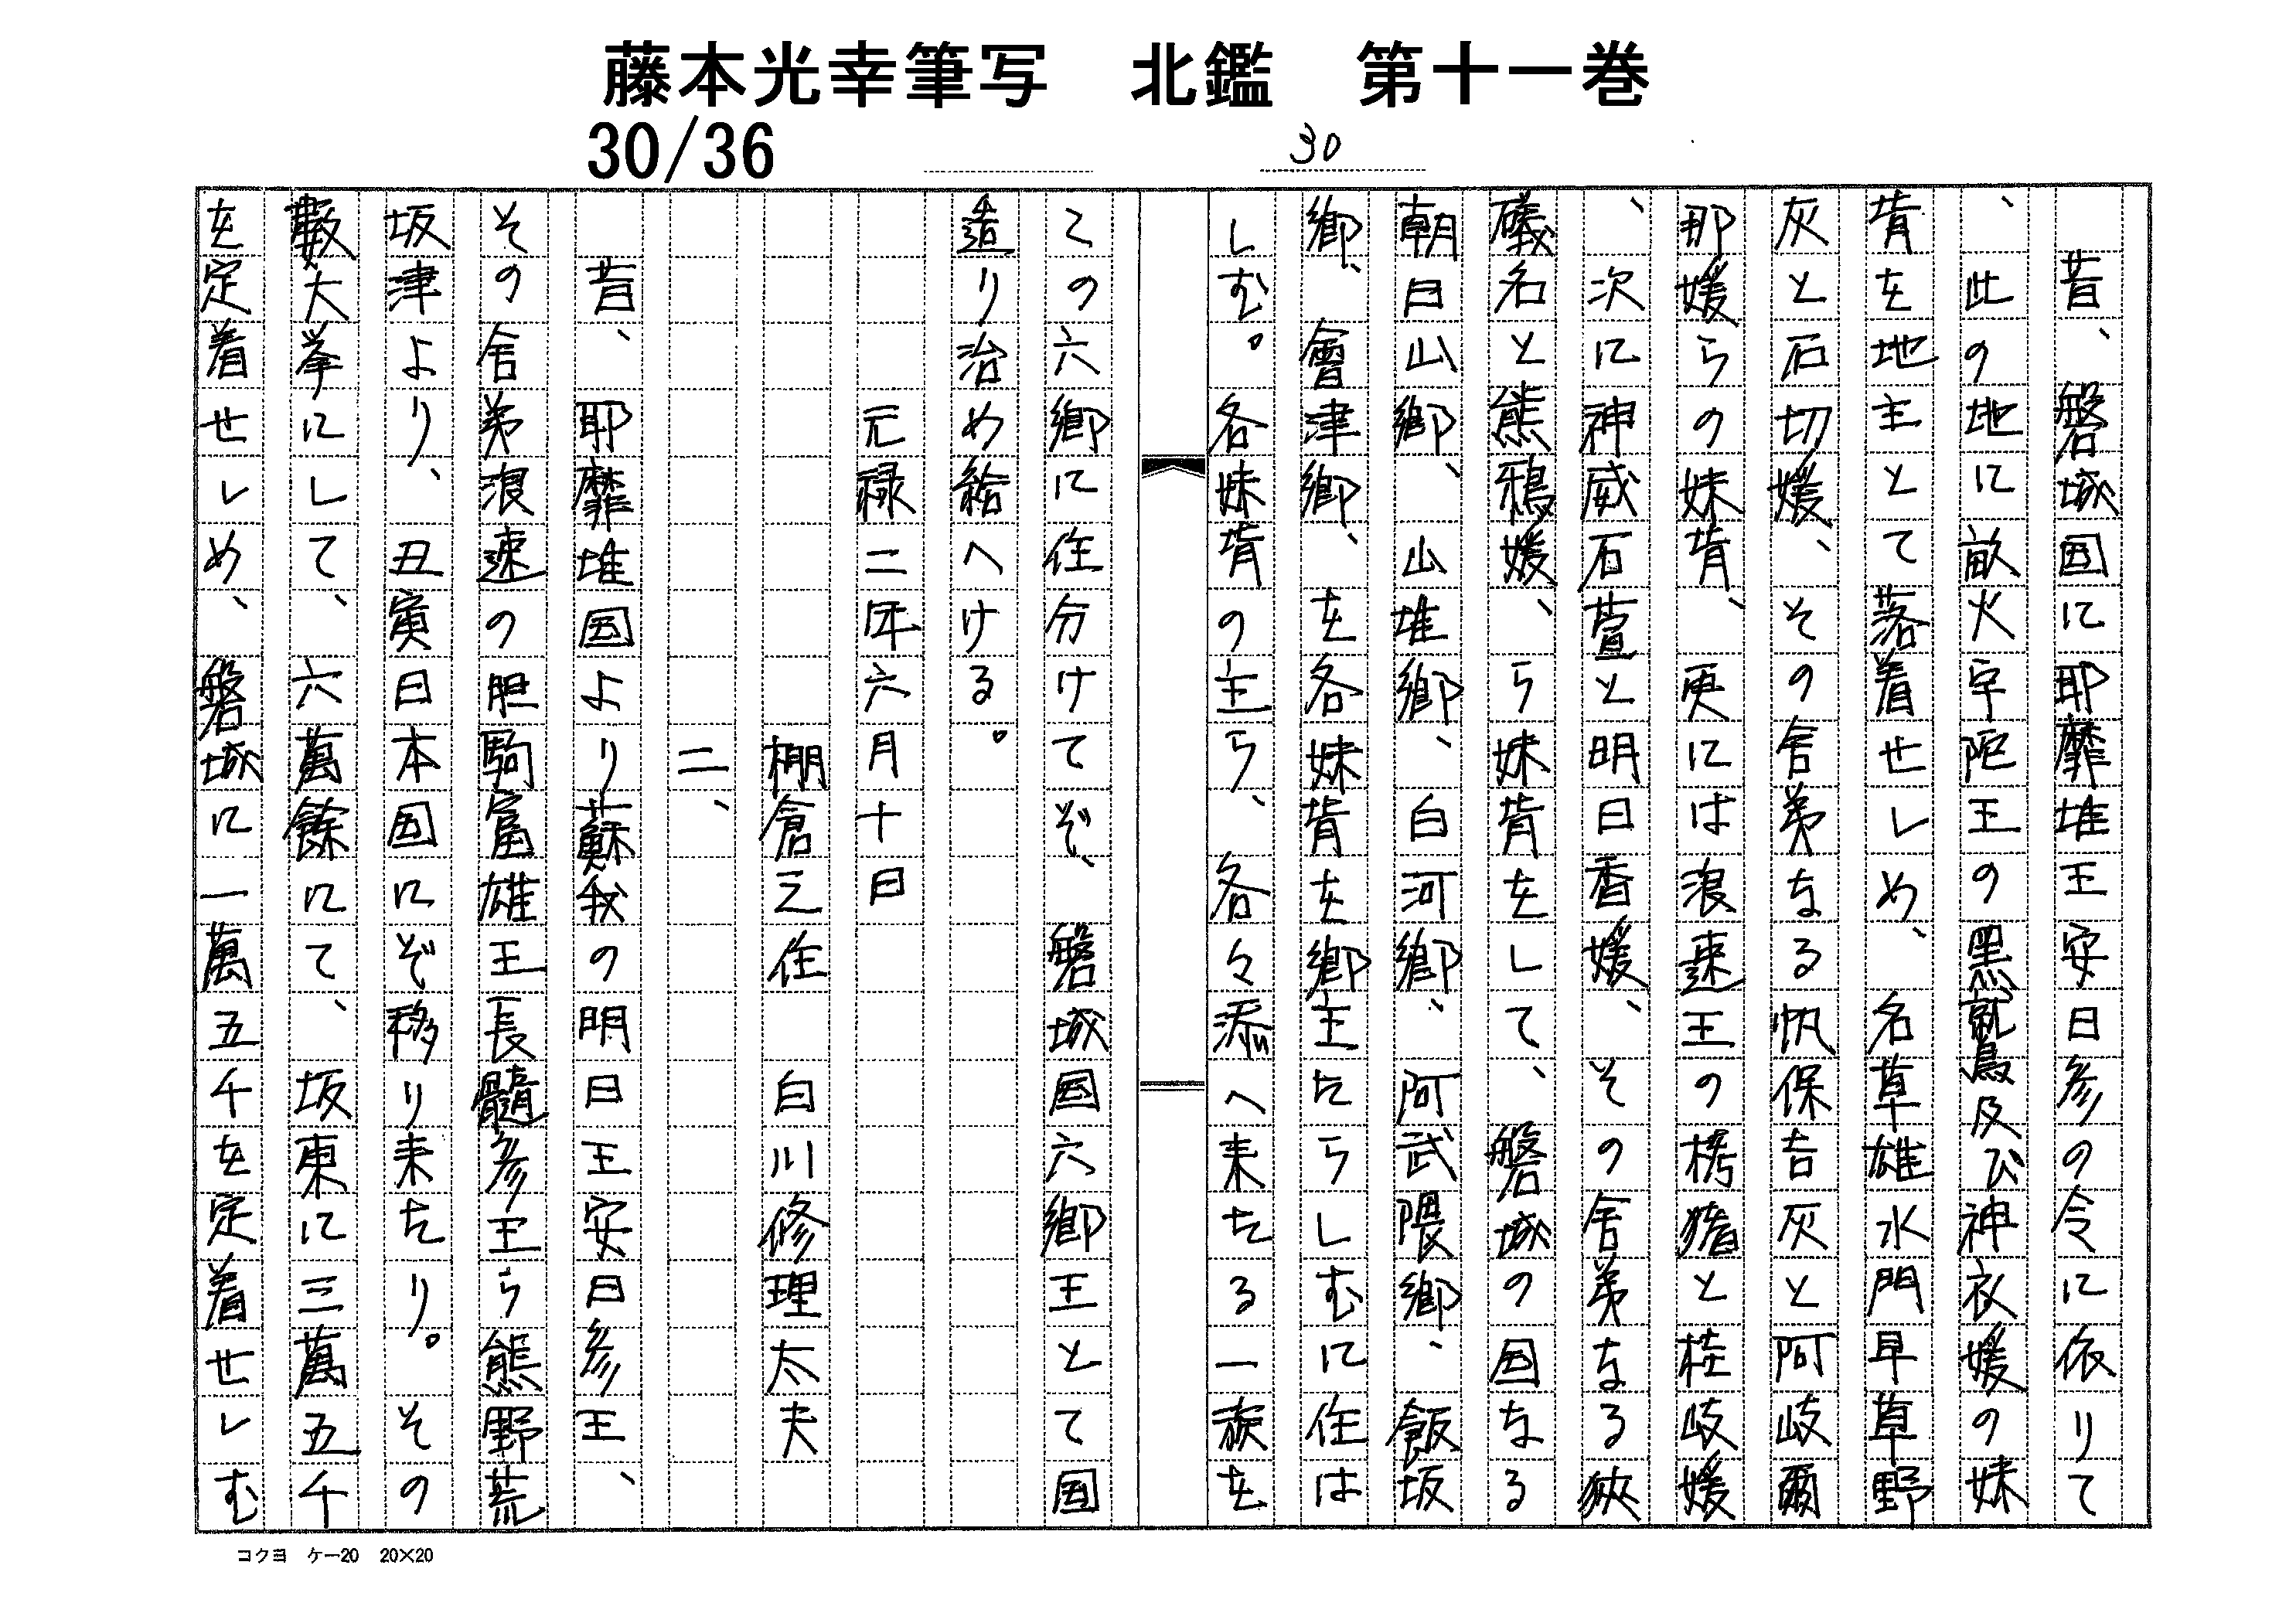 藤本光幸筆写　北鑑　第十一巻
30/36
30
昔、磐城国に耶靡堆王安日彦の令に依りて
、此の地に畝火宇陀王の黒鷲鳥及び神衣媛の妹
背を地主とて落着せしめ、名草雄水門早草野
灰と石切媛、その舎弟なる帆保吉灰と阿岐爾
那媛らの妹背、更には浪速王の栲猪と桂岐媛
、次に神威石萱と明日香媛、その舎弟なる狭
礒名と熊鴉媛、ら妹背をして、磐城の国なる
朝日山郷、山堆郷、白河郷、阿武隈郷、飯坂
郷、會津郷、を各妹背を郷主たらしむに住は
しむ。各妹背の主ら、各々添へ来たる一族を
この六郷に住分けてぞ、磐城国六郷王とて国
造り治め給へける。
元禄二年六月十日
棚倉之住　白川修理太夫
二、
昔、耶靡堆国より蘇我の明日王安日彦王、
その舎弟浪速の胆駒富雄王長髄彦王ら熊野荒
坂津より、丑寅日本国にぞ移り来たり。その
數大挙にして、六萬餘にて、坂東に三萬五千
を定着せしめ、磐城に一萬五千を定着せしむ
コクヨ　ケー20　20×20